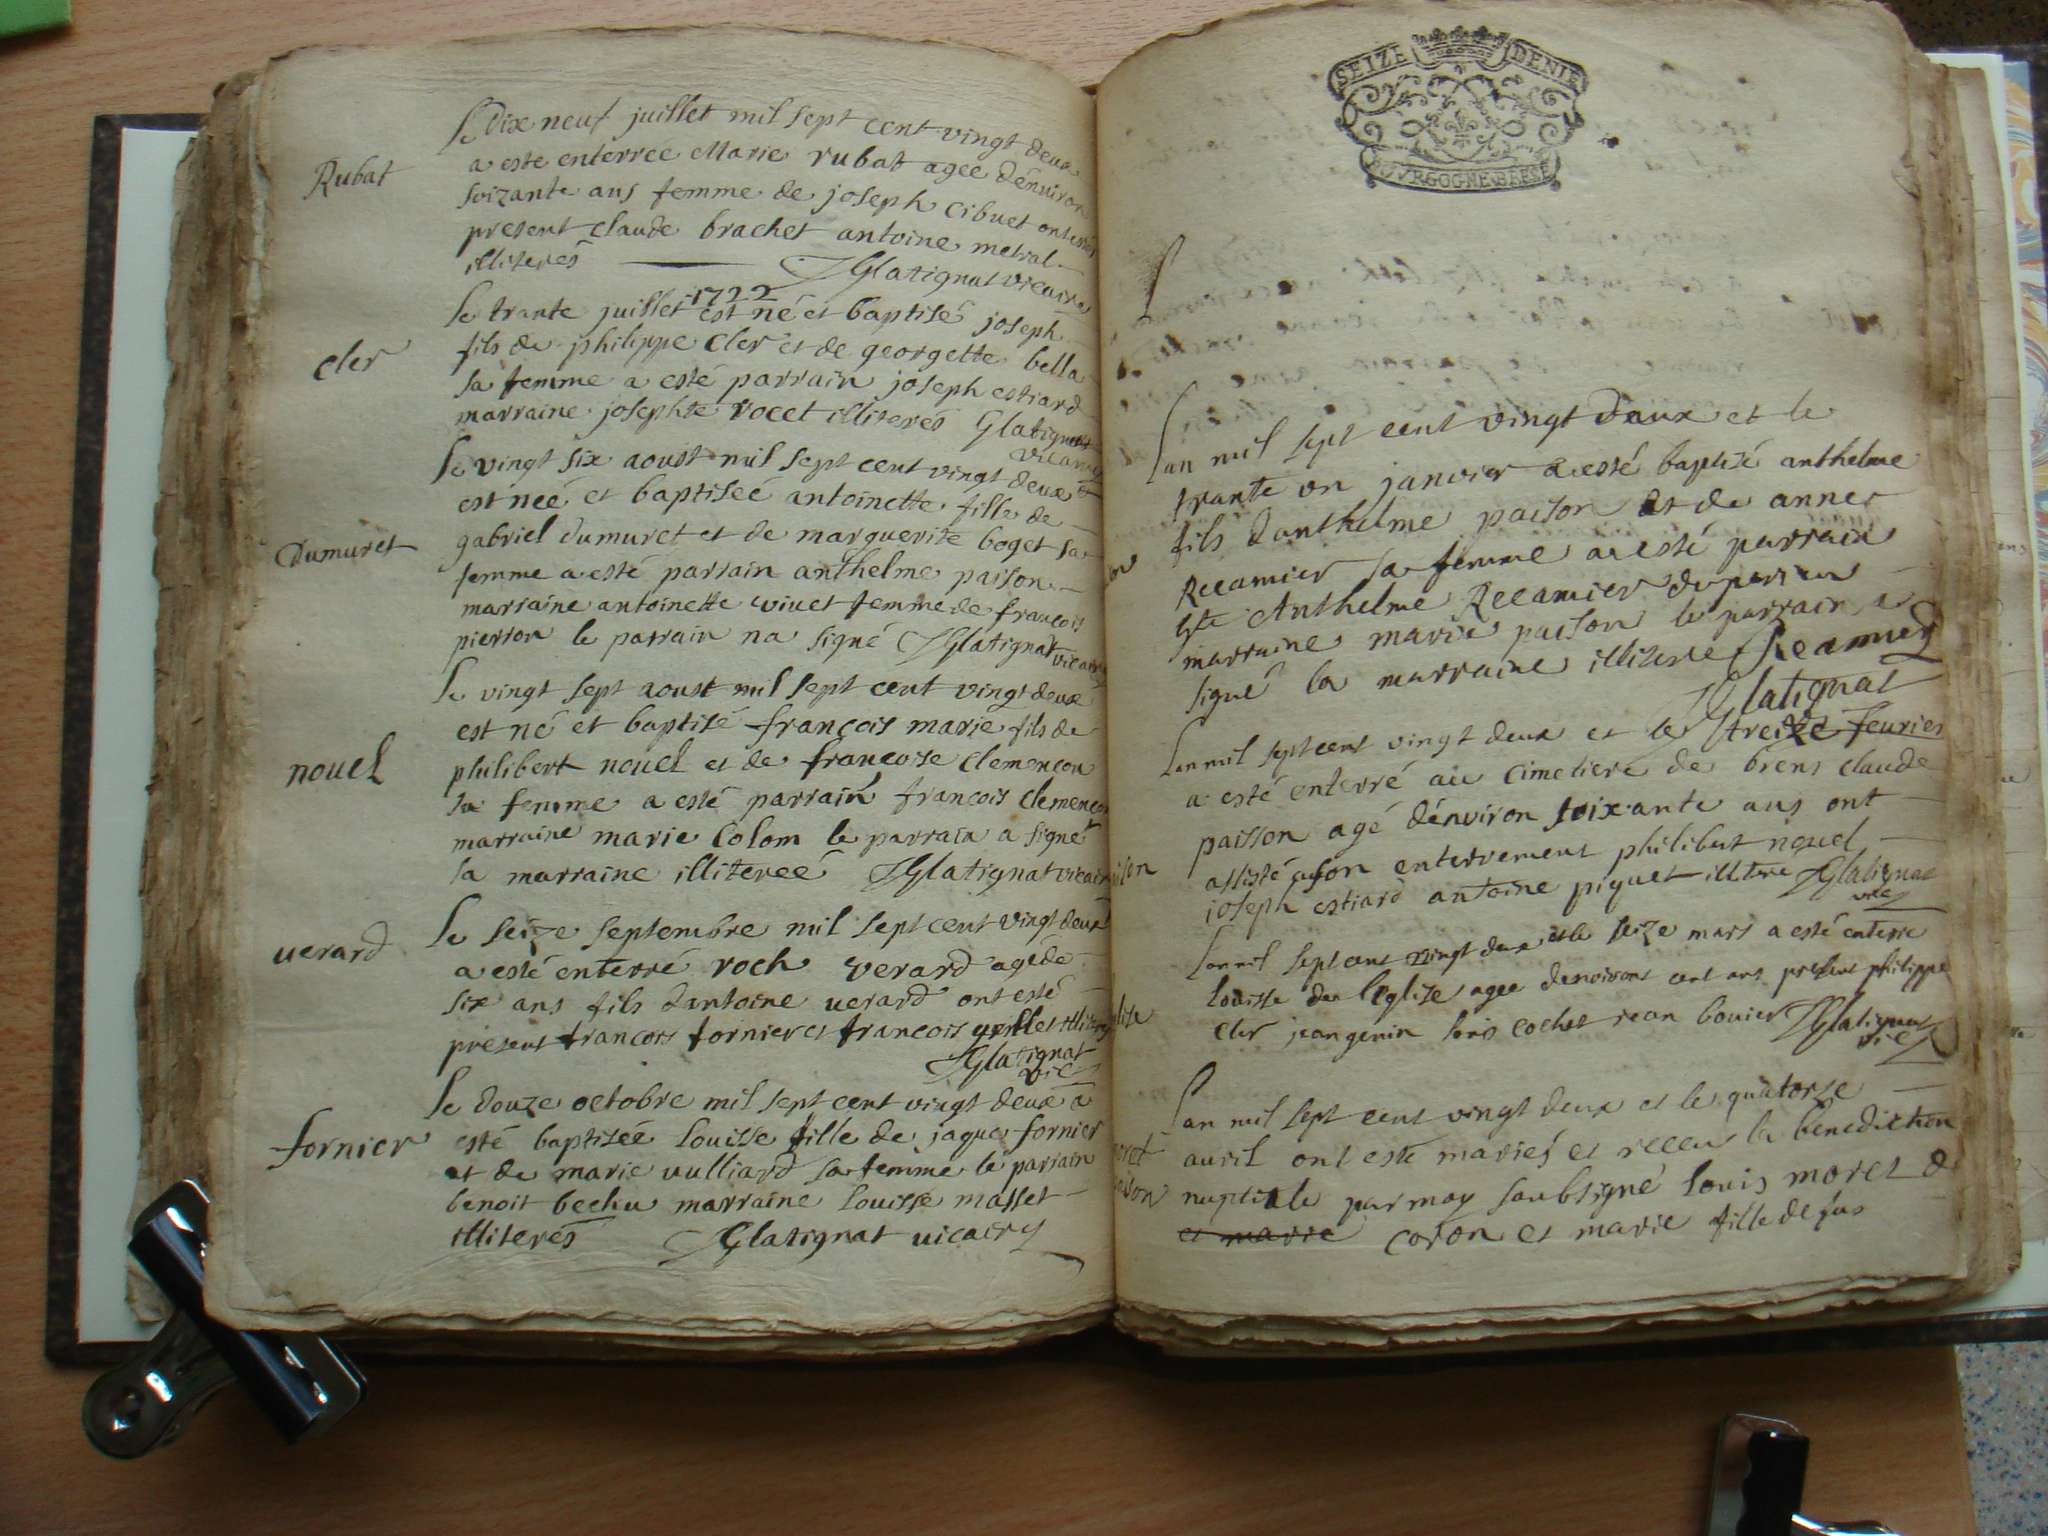 Le dix neuf juillet mil sept cent vingt deux
Rubat
a este enterree Marie rubat agee dénuiron
soizante ans femme de joseph cibuet ont esté
present claude brachet antoine metral
illiterés JGlatignat vicaire
Le trante juillet 1722 est né et baptisé joseph
cler
fils de philippe Cler et de georgette bella
sa femme a esté parrain joseph estiard
marraine josephte rocet illiterés Glatignat
vicaire
Le vingt six aoust mil sept cent vingt deux
est neé et baptiseé antoinette fille de
Dumuret
gabriel dumuret et de marguerite boget sa
femme a esté parrain anthelme paison
marraine antoinette vivet femme de francois
pierron le parrain na signé JGlatignat vicaire
Le vingt sept aoust mil sept cent vingt deux
est né et baptisé françois marie fils de
nouel
philibert nouel et de francoise clemencon
sa femme a esté parrain francois clemencon
marraine marie Colom le parrain a signé
la marraine illitereé JGlatignat vicaire
Le seize septembre mil sept cent vingt deux
uerard
a esté enterré roch verard agé de
six ans fils dantoine uerard ont esté
present francois fornier et francois grillet
JGlatignat
vic
Le douze octobre mil sept cent vingt deux a
fornier
esté baptiseé Louisse fille de jaques fornier
et de marie vulliard sa femme le parrain
benoit bechu marraine Louisse masset
illiterés JGlatignat uicaire
SEIZE DENIE
BOURGOGNE BRESE
Lan mil sept cent vingt daux et le
trante un janvier a esté baptizé anthelme
fils danthelme paison et de anne
Recamier sa femme a esté parrain
Anthelme Recamier
marraine marie paison le parrain a
signé la marraine illitere Reamier
JGlatignat
Lan mil sept cent vingt deux et le treize feurier
a esté enterré au cimetiere de brens claude
paisson agé dénviron soixante ans ont
assisté a son enterrement philibert nouel
joseph estiard antoine piquet illitere JGlatignat
vic
Lan mil sept cent vingt deux et le seize mars a esté enterre
Louisse de Leglize agee denvirons cent ans present philippe
cler jean genin lois cochet jean bouier JGlatignat
vic
Lan mil sept cent vingt deux et le quatorze
auril ont este mariés et receu la benediction
nuptiale par moy soubsigné Louis moret d
et marie coron et marie fille de